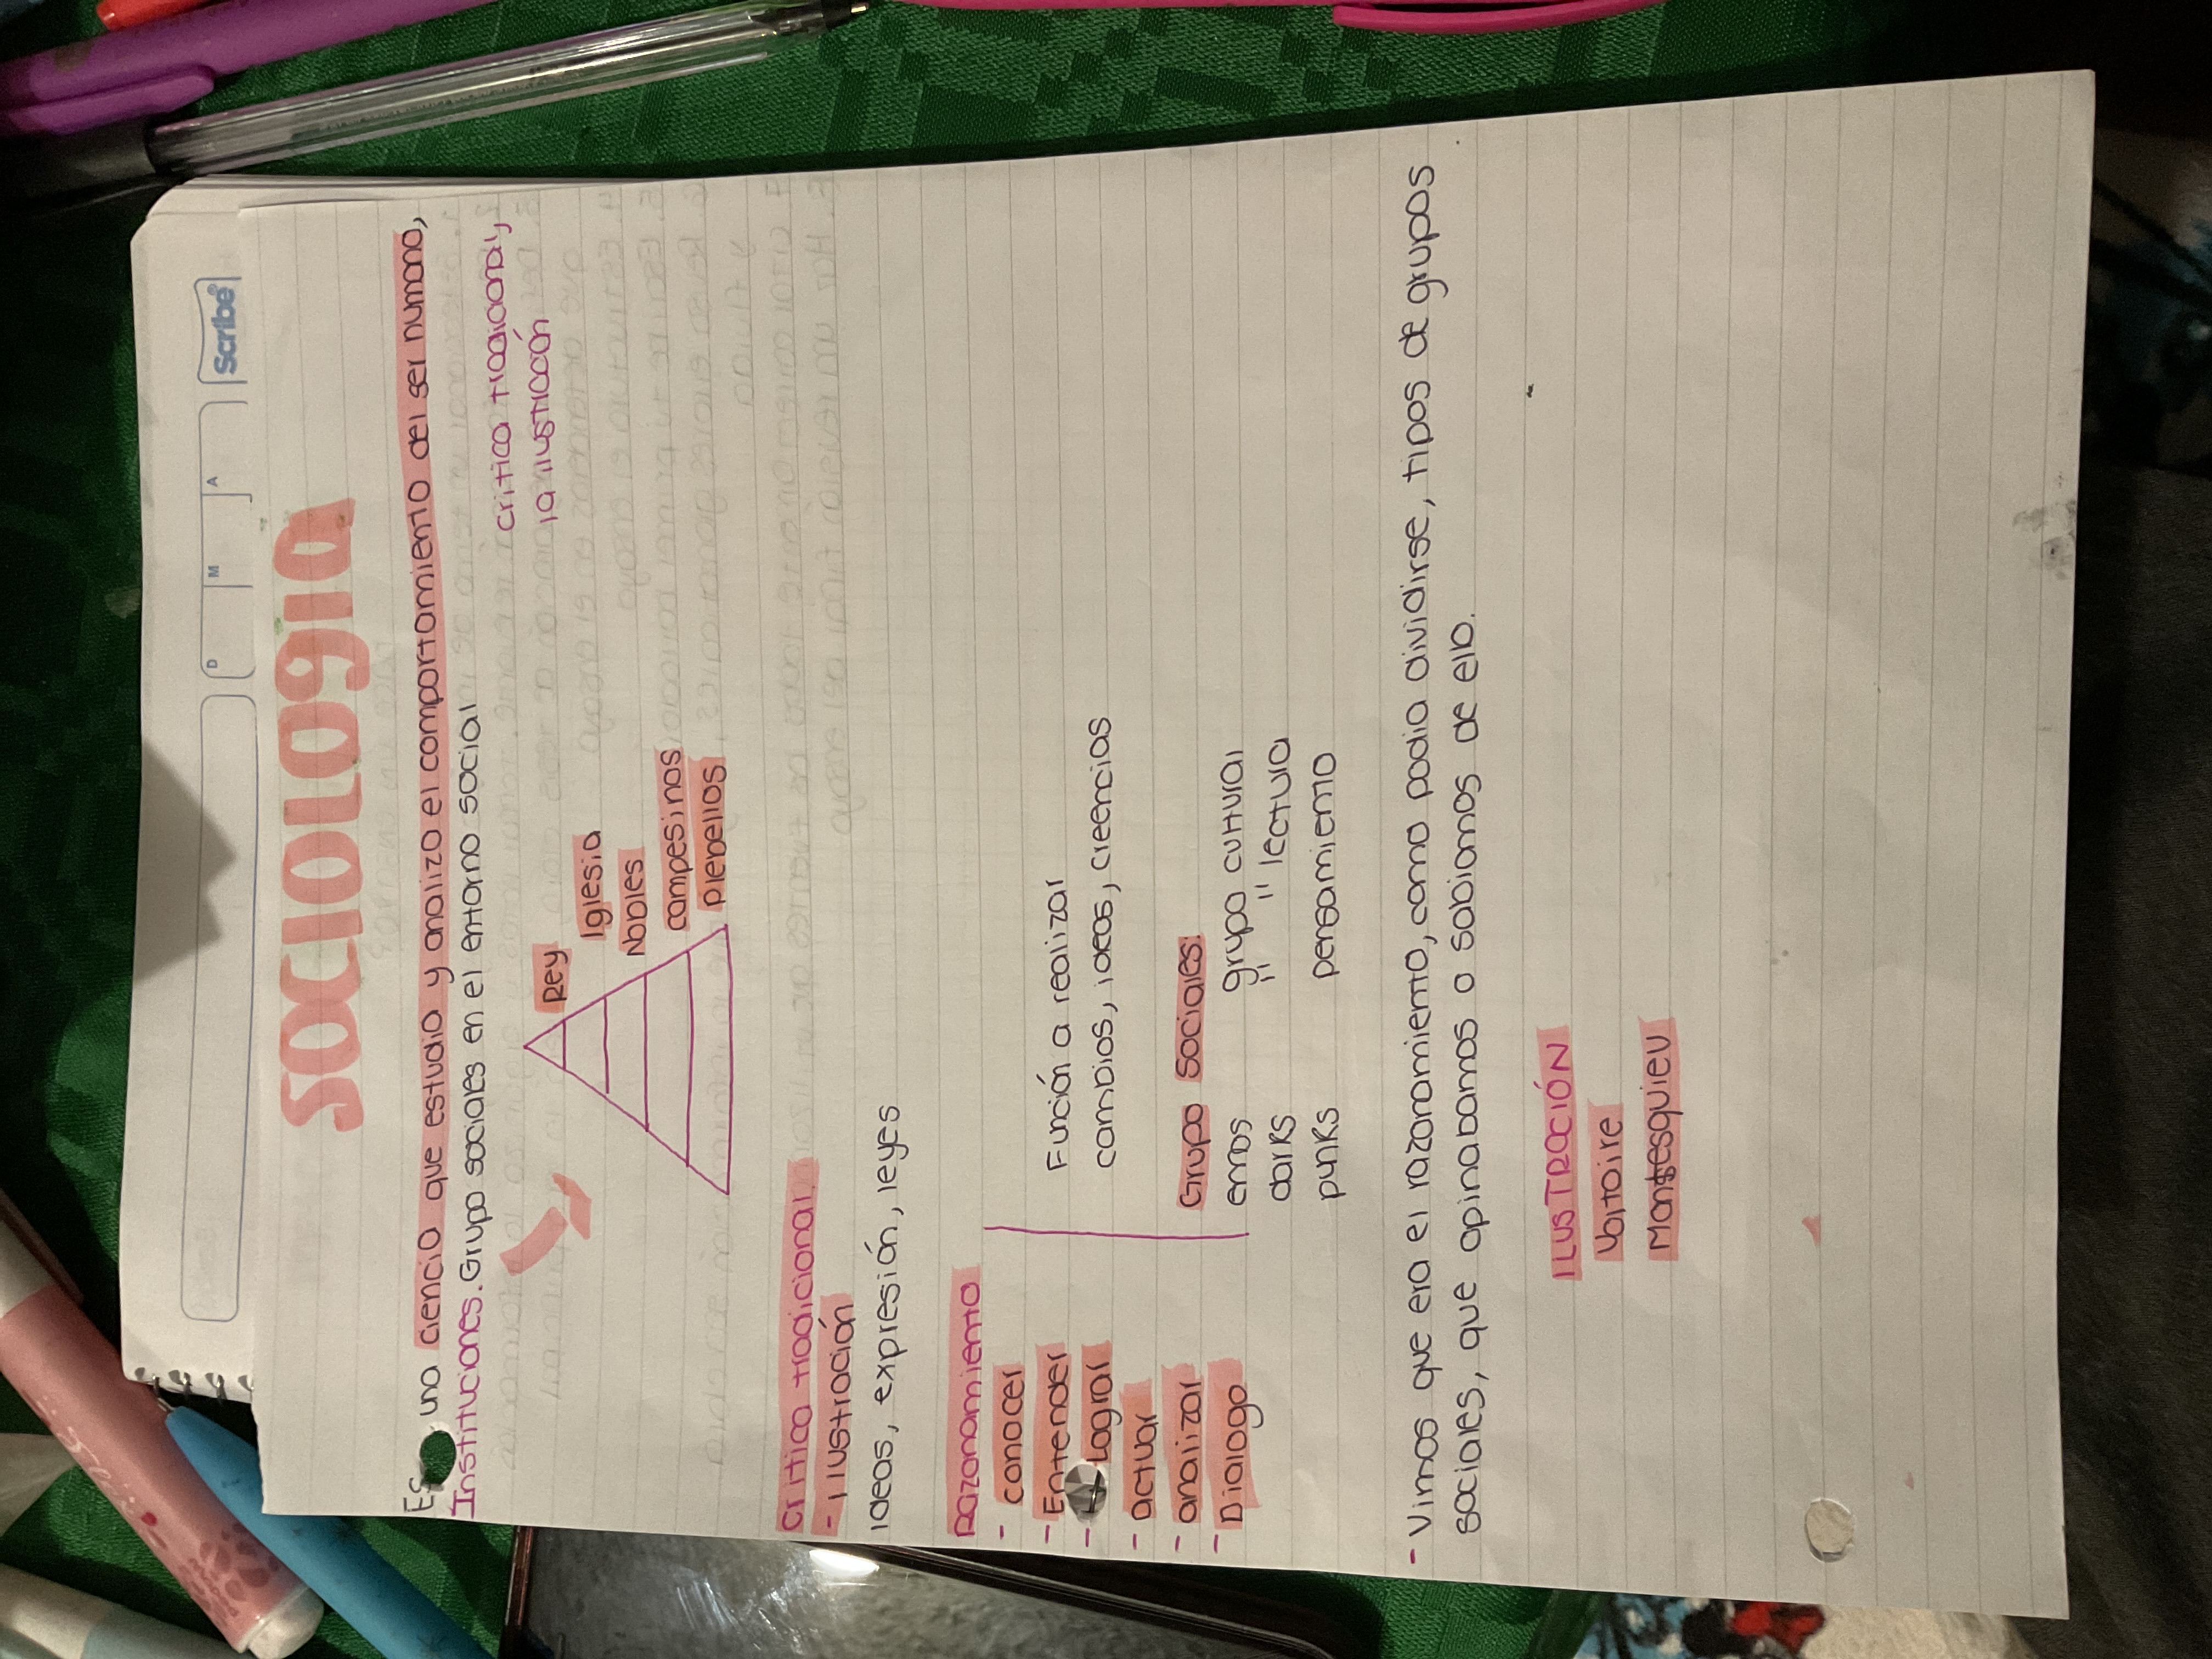 D M A Scribe
SOCIOLOGIA
Es una ciencia que estudia y analiza el comportamiento del ser humano,
Instituciones. Grupo sociales en el entorno social
critica tradicional,
la ilustración
Rey
Iglesia
Nobles
campesinos
plebellos
critica tradicional.
- ilustración
ideas, expresión, leyes
Razonamiento
- conocer
- Entender
- Lograr
- actuar
- analizar
- Dialogo
Función a realizar
cambios, ideas, creencias
Grupo sociales:
emos grupo cultural
darks " " lectura
punks pensamiento
- Vimos que era el razonamiento, como podia dividirse, tipos de grupos
sociales, que opinabamos o sabiamos de ello.
ILUSTRACIÓN
Voltaire
Montesquieu